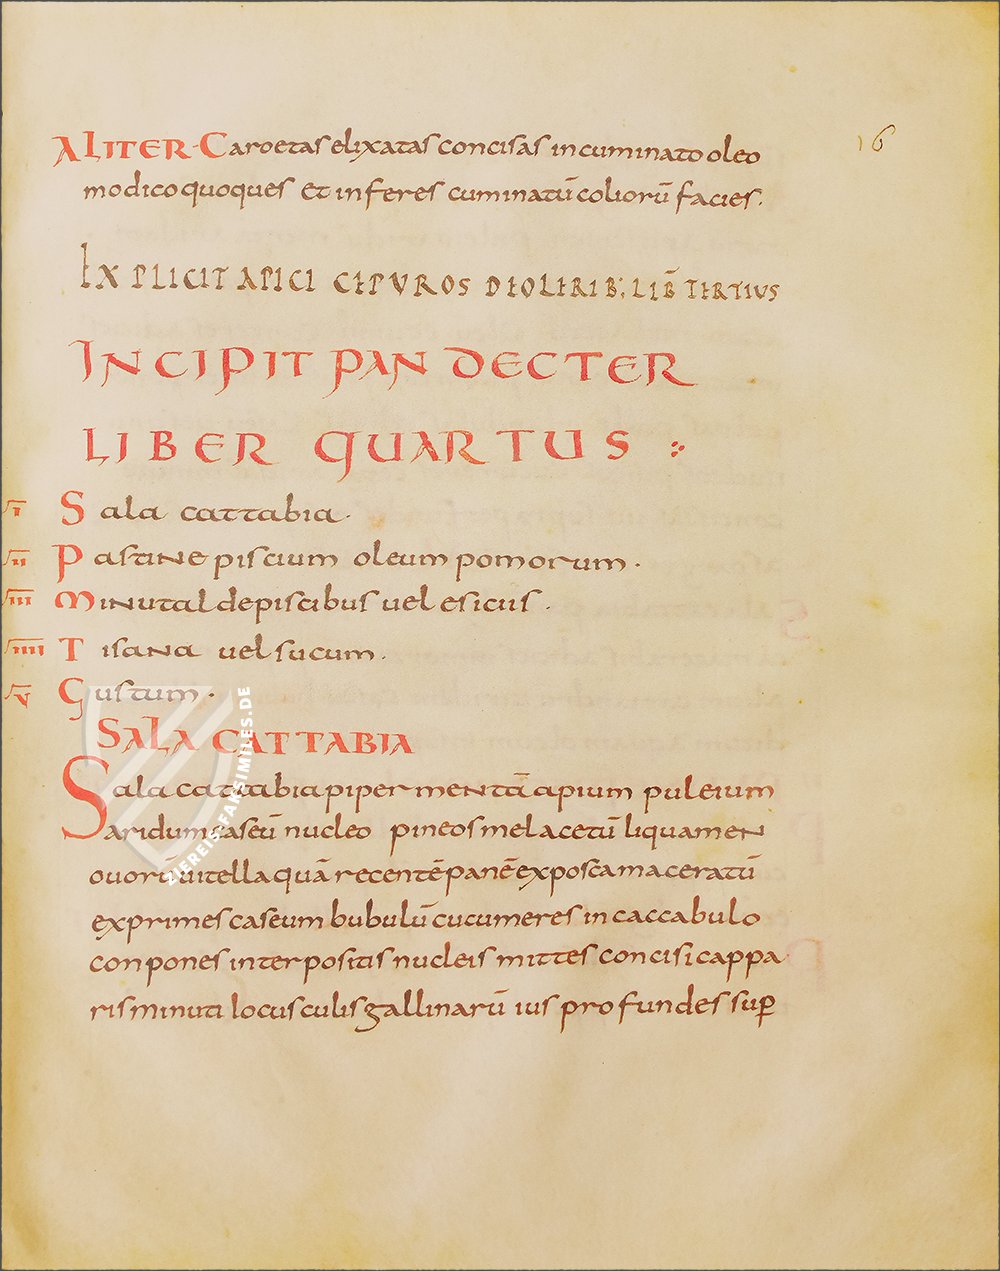 16
ALITER · Caroetas elixatas concisas in cuminato oleo
modico quoques et inferes cuminatū coliorū facies.
EXPLICIT APICI CEPUROS DEOLERIB; LIB̄ TERTIUS
INCIPIT PANDECTER
LIBER QUARTUS :·
I Sala cattabia.
II Pastine piscium oleum pomorum.
III Minutal de piscibus vel esicus.
IIII Tisana vel sucum.
V Gustum.
SALA CATTABIA
Sala cattabia piper mentā apium puleium
aridum caseū nucleo pineos mel acetū liquamen
ovorū vitella quā recentē panē ex posca maceratū
exprimes caseum bubulū cucumeres in caccabulo
conpones interpositis nucleis mittes concisi cappa
ris minuti locusculis gallinarū ius profundes sup̄
ZIEREIS-FAKSIMILES.DE